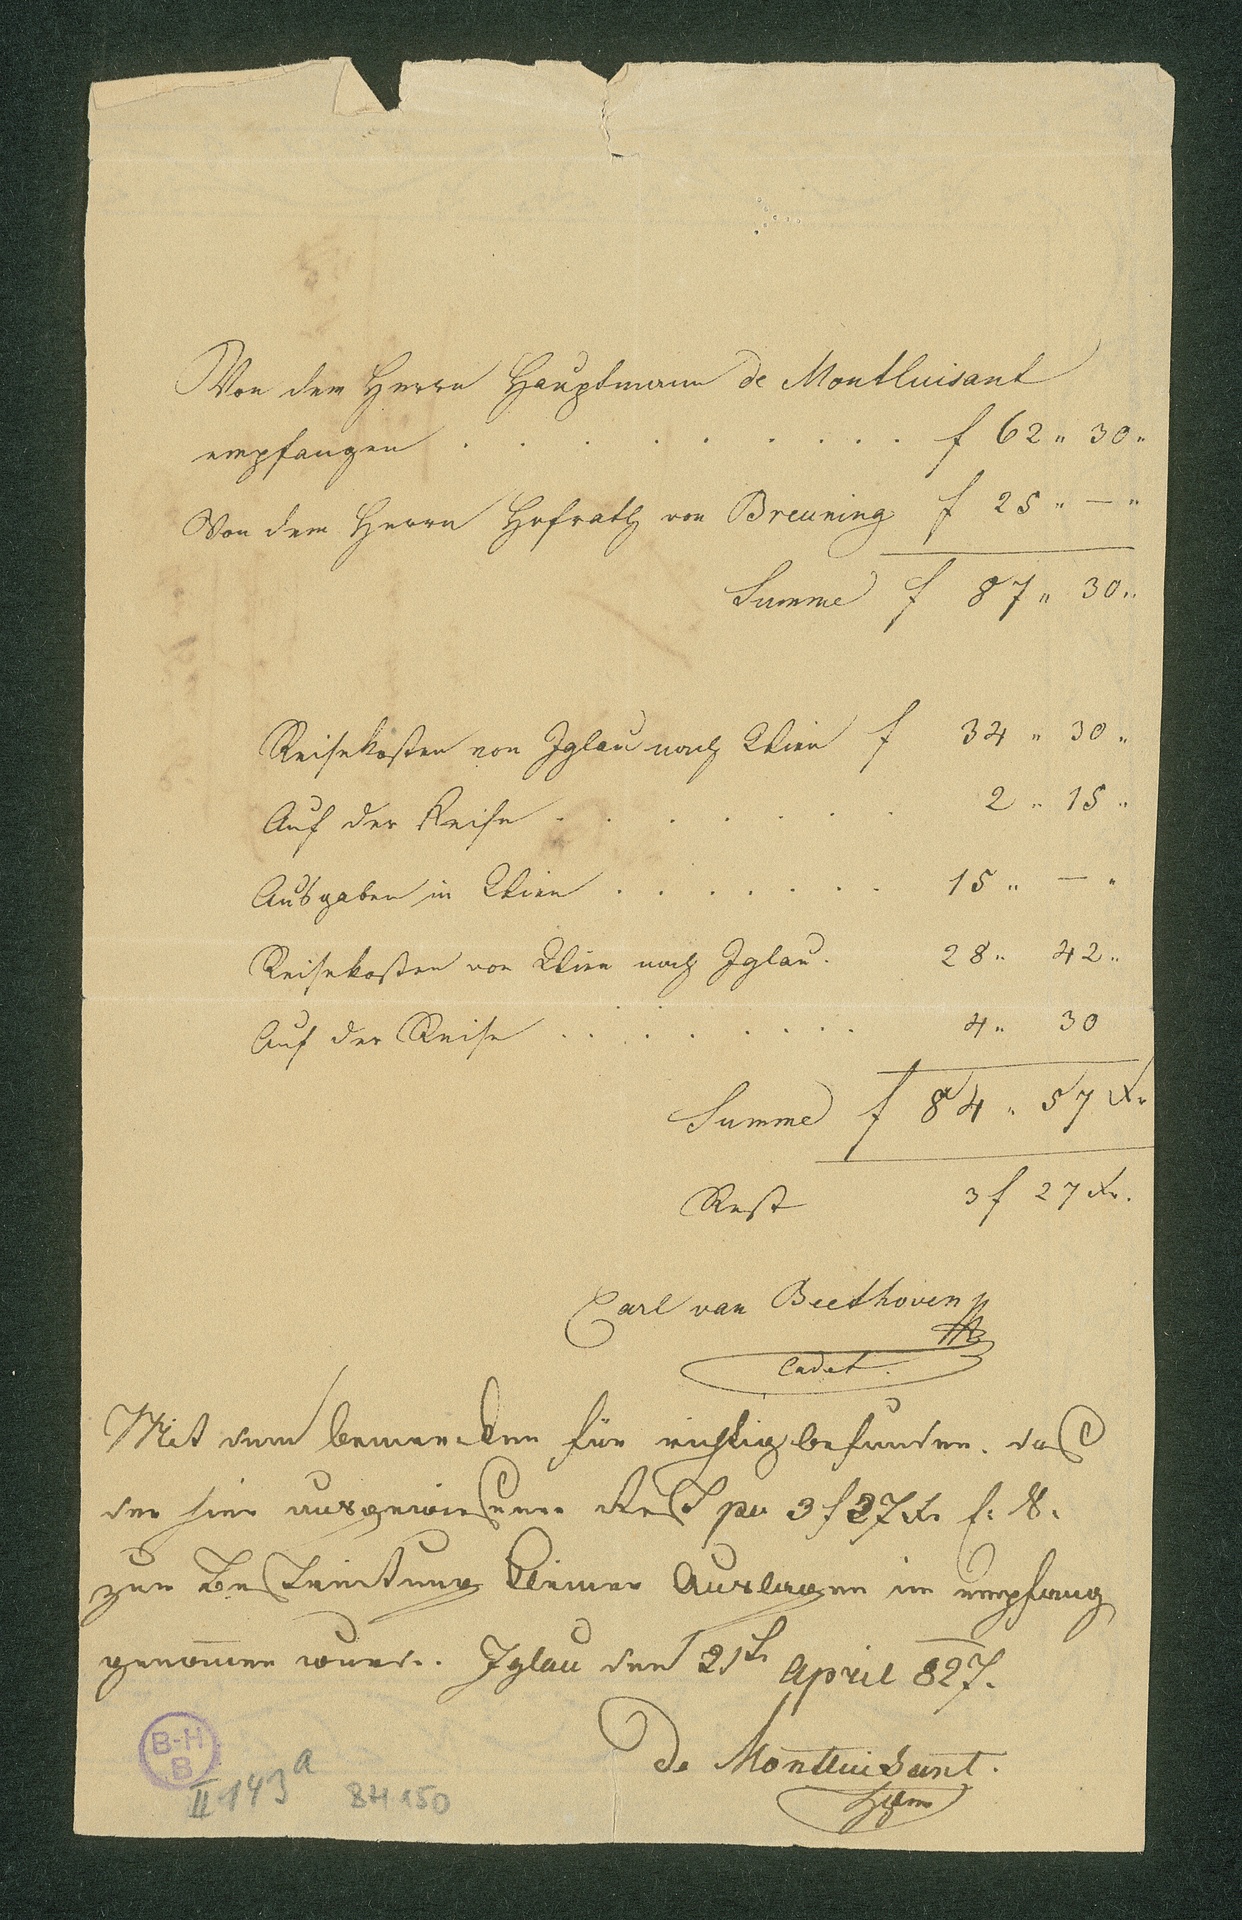 Von dem Herrn Hauptmann de Montluisant
empfangen . . . . . . . . . . f 62 „ 30 „
Von dem Herrn Hofrath von Breuning f 25 „ — „
Summe f 87 „ 30 „
Reisekosten von Iglau nach Wien f 34 „ 30 „
Auf der Reise . . . . . . . 2 „ 15 „
Ausgaben in Wien . . . . . . 15 „ — „
Reisekosten von Wien nach Iglau . 28 „ 42 „
Auf der Reise . . . . . . . 4 „ 30
Summe f 84 „ 57 Xr
Rest 3 f 27 Xr.
Carl van Beethoven
Cadet.
Mit dem bemerken für richtig befunden, daß
der hier ausgewiesene Rest pr 3 f 27 Xr.
zur Bestreitung kleiner Auslagen in empfang
genom̅en wurde. Iglau den 21tn April 827.
De Montluisant.
Hptm
B-H
B
II 143 a
BH 150